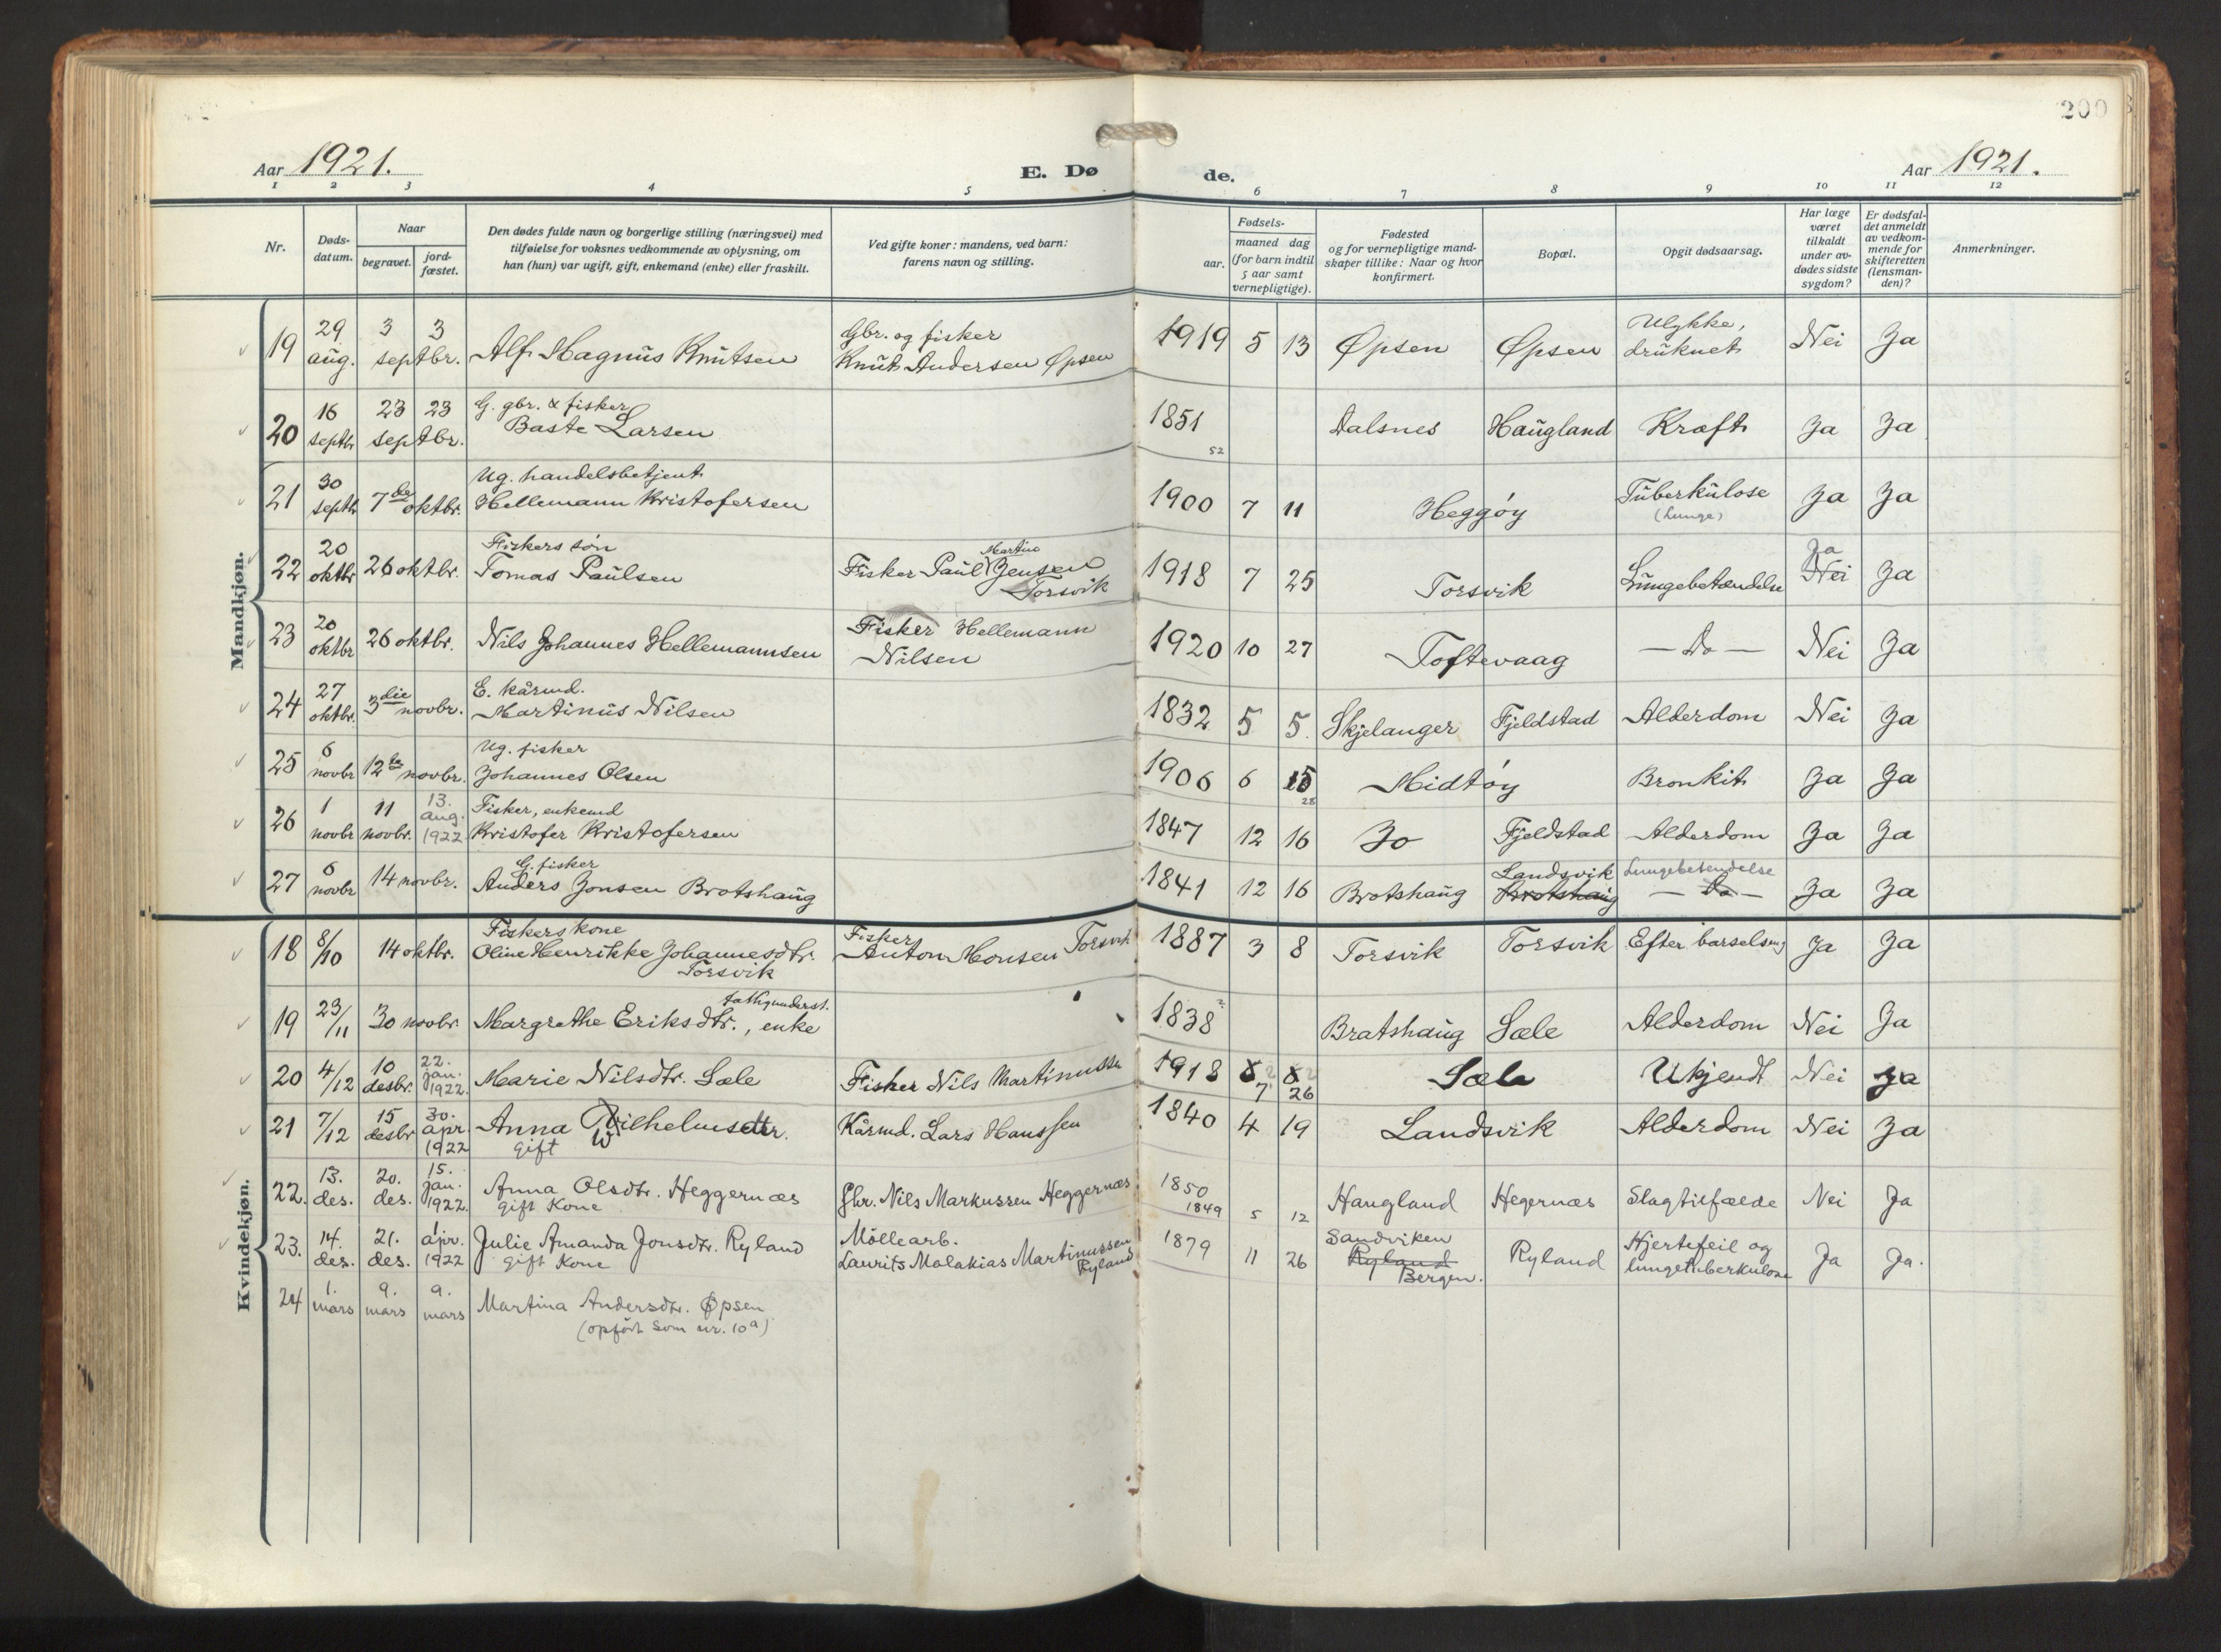 200
Aar 1921.
E. Dø
de.
Aar 1921.
1 2 3 4 5 6 7 8 9 10 11 12
Nr.
Døds-
datum.
Naar
begravet.
jord-
fæstet.
Den dødes fulde navn og borgerlige stilling (næringsvei) med
tilføielse for voksnes vedkommende av oplysning, om
han (hun) var ugift, gift, enkemand (enke) eller fraskilt.
Ved gifte koner: mandens, ved barn:
farens navn og stilling.
Fødsels-
aar.
maaned dag
(for barn indtil
5 aar samt
vernepligtige).
Fødested
og for vernepligtige mand-
skaper tillike: Naar og hvor
konfirmert.
Bopæl.
Opgit dødsaarsag.
Har læge
været
tilkaldt
under av-
dødes sidste
sygdom?
Er dødsfal-
det anmeldt
av vedkom-
mende for
skifteretten
(lensman-
den)?
Anmerkninger.
Mandkjøn.
19 29 aug. 3 3 septbr. Alf Magnus Knutsen Gbr. og fisker Knut Andersen Øpsen 1919 5 13 Øpsen Øpsen Ulykke, druknet Nei Ja
20 16 septbr 23 23 septbr. G. gbr. & fisker Baste Larsen 1851 52 Dalsnes Haugland Kræft Ja Ja
21 30 septbr 7de oktbr. Ug. handelsbetjent Hellemann Kristofersen 1900 7 11 Heggøy Tuberkulose (Lunge) Ja Ja
22 20 oktbr 26 oktbr. Fiskers søn Tomas Paulsen Fisker Paul Martin Jensen Torsvik 1918 7 25 Torsvik Lungebetændelse Nei Ja Ja
23 20 oktbr 26 oktbr. Nils Johannes Hellemannsen Fisker Hellemann Nilsen 1920 10 27 Toftevaag — Do — Nei Ja
24 27 oktbr. 3die novbr. E. kårmd. Martinus Nilsen 1832 5 5. Skjelanger Fjeldstad Alderdom Nei Ja
25 6 novbr 12te novbr. Ug. fisker Johannes Olsen 1906 6 15 28 Midtøy Bronkit Ja Ja
26 1 novbr 11 novbr. 13. aug. 1922 Fisker, enkemd Kristofer Kristofersen 1847 12 16 Jo Fjeldstad Alderdom Ja Ja
27 6 novbr 14 novbr. G. fisker Anders Jonsen Brotshaug 1841 12 16 Brotshaug Landsvik Brotshaug Lungebetendelse — Do — Ja Ja
Kvindekjøn.
18 8/10 14 oktbr. Fiskers kone Oline Henrikke Johannesdtr. Torsvik Fisker Anton Monsen Torsvik 1887 3 8 Torsvik Torsvik Efter barselseng Ja Ja
19 23/11 30 novbr. Margrethe Eriksdtr., enke fattigunderst. 1838 Bratshaug Sæle Alderdom Nei Ja
20 4/12 10 desbr. 22. jan. 1922. Marie Nilsdtr. Sæle Fisker Nils Martinussen 1918 8 8 7 26 Sæle Ukjendt Nei Ja
21 7/12 15 desbr 30. apr 1922 Anna Wilhelmsdtr. gift Kårmd. Lars Hanssen 1840 4 19 Landsvik Alderdom Nei Ja
22. 13. des. 20. des. 15. jan. 1922. Anna Olsdtr. Heggernæs gift Kone Gbr. Nils Markussen Heggernæs 1850 1849 5 12 Haugland Hegernæs Slagtilfælde Nei Ja
23. 14. des. 21. des. 1. apr. 1922 Julie Amanda Jonsdtr. Ryland gift Kone Møllearb. Laurits Malakias Martinussen Ryland 1879 11 26 Sandviken Ryland Bergen. Ryland Hjertefeil og lungetuberkulose Ja Ja.
24 1. mars 9. mars 9. mars Martina Andersdtr. Øpsen
(opført som nr. 10a)